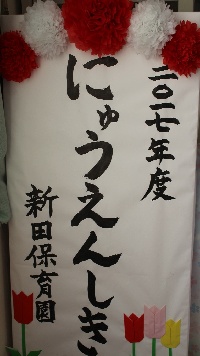 二〇一七年度
にゅうえんしき
新田保育園